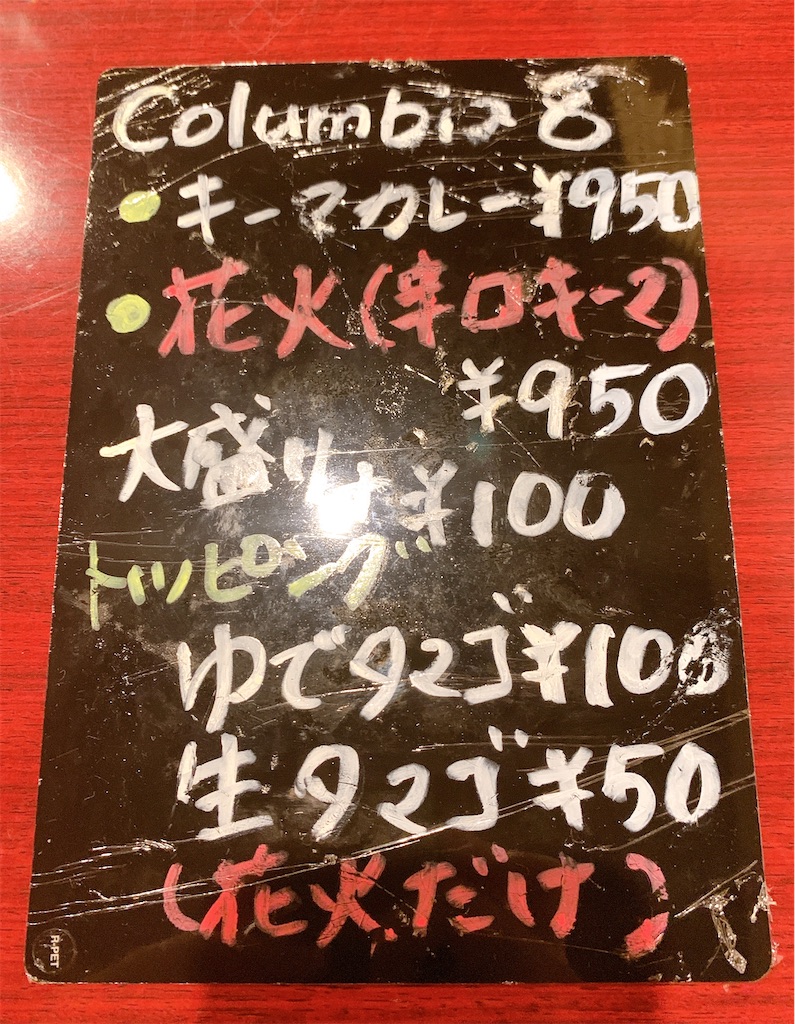 Columbia 8
キーマカレー ¥950
花火(辛口キーマ)
¥950
大盛り ¥100
トッピング
ゆでタマゴ ¥100
生タマゴ ¥50
(花火だけ)
R-PET